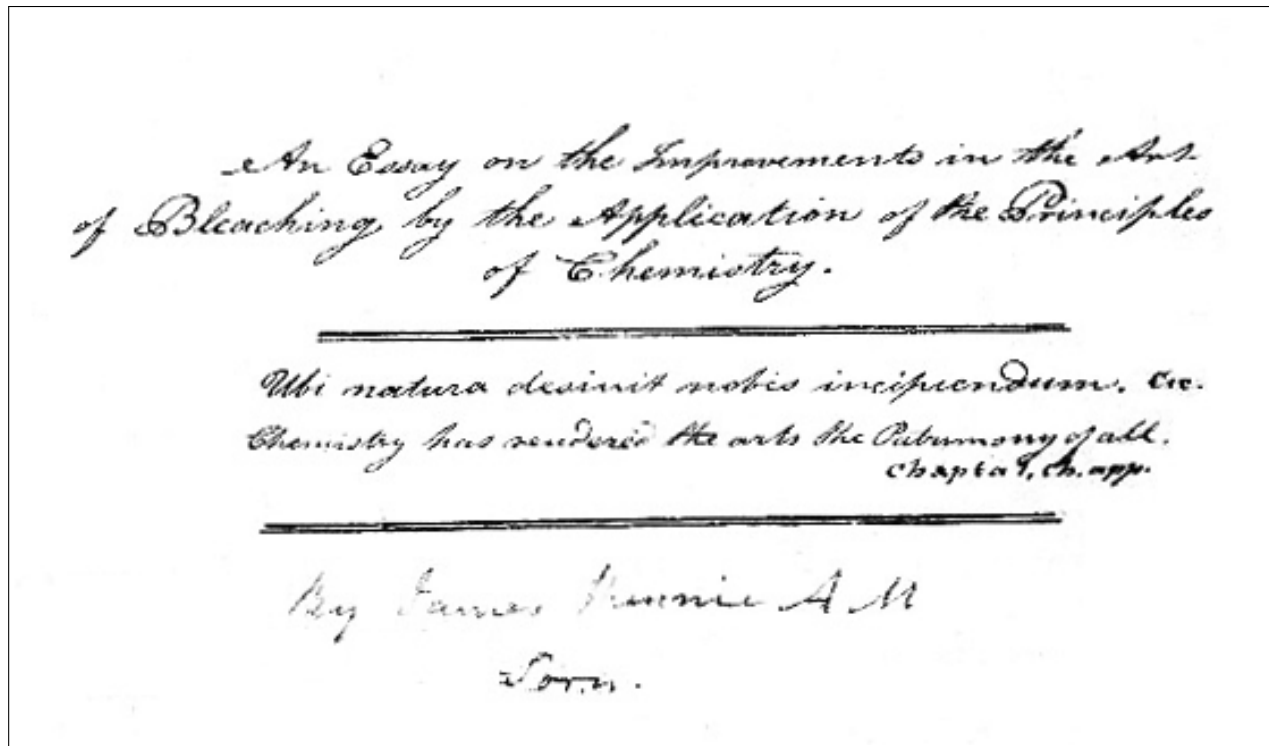 An Essay on the Improvements in the Art
of Bleaching by the Application of the Principles
of Chemistry.
Ubi natura desinit nobis incipiendum. &c.
Chemistry has rendered the arts the Patrimony of all.
Chaptal, ch. app.
By James Rennie A M
Sorn.